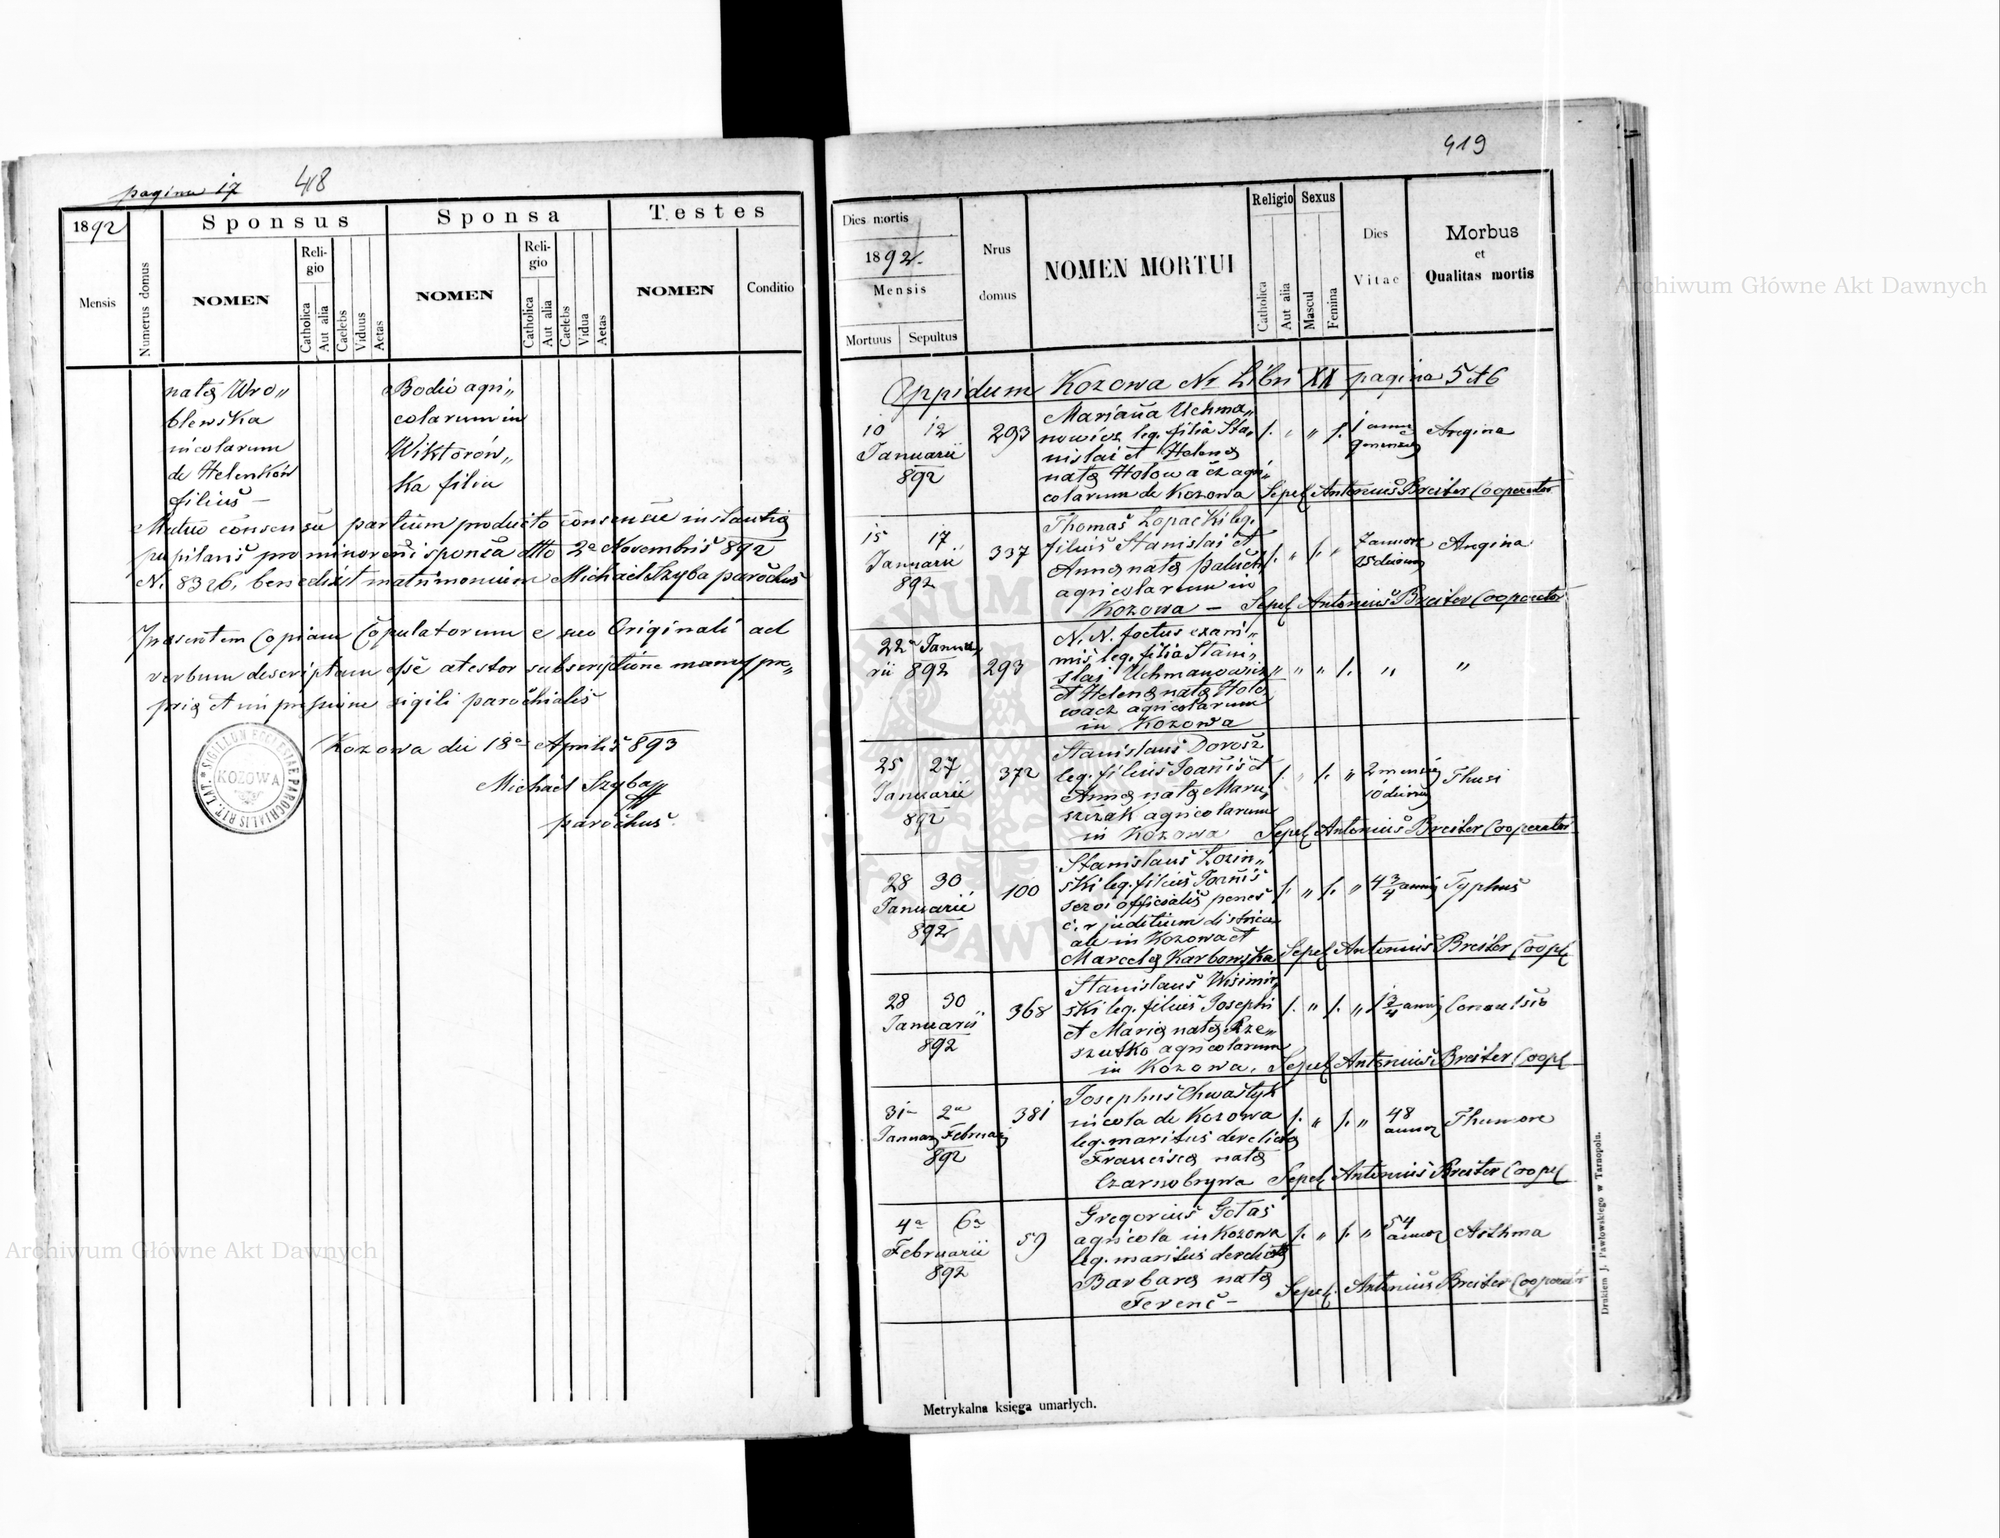 pagina 17 418
1892
Sponsus
Sponsa
Testes
Mensis
Numerus domus
NOMEN
Religio
Catholica
Aut alia
Caelebs
Viduus
Aetas
NOMEN
Religio
Catholica
Aut alia
Caelebs
Vidua
Aetas
NOMEN
Conditio
natę Wro„
blewska
incolarum
de Helenków
filius —
Bodio agri„
colarum in
Wiktorów„
ka filia
Mutuo consensu partium producto consensu instantię
pupilaris pro minoreni sponsa dtto 2a Novembris 892
N. 8326, benedixit matrimonium Michael Szyba parochus
Praesentem Copiam Copulatorum e suo Originali ad
verbum descriptam esse atestor subscriptione manus pro„
prię et impressione sigili parochialis
Kozowa die 18a Aprilis 893
Michael Szyba
parochus
SIGILLUM ECCLESIAE PAROCHIALIS RIT. LAT.
KOZOWA
419
Dies mortis
1892.
Mensis
Mortuus
Sepultus
Nrus
domus
NOMEN MORTUI
Religio
Catholica
Aut alia
Sexus
Mascul
Femina
Dies
Vitae
Morbus
et
Qualitas mortis
Oppidum Kozowa Nr Libri XX pagina 5 et 6
10 12
Januarii
892
293
Mariana Uchma„
nowicz leg. filia Sta„
nislai et Helenę
natę Hołowacz agri„
colarum de Kozowa
/. „ „ /.
1 anni
9 mensium
Angina
Sepel Antonius Breiter Cooperator
15 17
Januarii
892
337
Thomas Łopacki leg.
filius Stanislai et
Annę natę Paluch
agricolarum in
Kozowa —
/. „ /. „
7 annor
25 dierum
Angina
Sepel Antonius Breiter Cooperator
22a Janua„
rii 892
293
N. N. foetus exani„
mis leg. filia Stani„
slai Uchmanowicz
et Helenę natę Hoło„
wacz agricolarum
in Kozowa
„ „ „ /. „ „
25 27
Januarii
892
372
Stanislaus Dorosz
leg. filius Joanis et
Annę natę Maru„
szczak agricolarum
in Kozowa
/. „ /. „
2 mensiū
10 dierum
Thusi
Sepel Antonius Breiter Cooperator
28 30
Januarii
892
100
Stanislaus Łozin„
ski leg. filius Joanis
servi officialis penes
c. r judicium districtu
ale in Kozowa et
Marcelę Karbowska
/. „ /. „
4 3/4 annor
Typhus
Sepel Antonius Breiter Coopel
28 30
Januarii
892
368
Stanislaus Wisimir„
ski leg. filius Josephi
et Marię natę Rze„
szutko agricolarum
in Kozowa.
/. „ /. „
1 3/4 anni
Convulsio
Sepel Antonius Breiter Coopl
31a 2a
Januar Februar
892
381
Josephus Chwastyk
incola de Kozowa
leg. maritus derelictę
Franciscę natę
Czarnobrywa
/. „ /. „
48
annor
Thumore
Sepel Antonius Breiter Coopl
4a 6a
Februarii
892
59
Gregorius Gołas
agricola in Kozowa
leg. maritus derelictę
Barbarę natę
Ferenc —
/. „ /. „
54
annor
Asthma
Sepel. Antonius Breiter Cooperator
Metrykalna księga umarłych.
Drukiem J. Pawłowskiego w Tarnopolu.
Archiwum Główne Akt Dawnych
Archiwum Główne Akt Dawnych